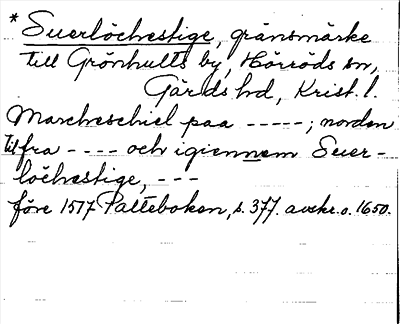 * Suerlöchestige, gränsmärke
till Grönhults by, Hörröds sn,
Gärds hd, Krist. l.
Marcheschiel paa -----; norden
till fra ---- och igiennem Suer-
löchestige, ---
före 1517 Palteboken, s. 377. avskr. o. 1650.